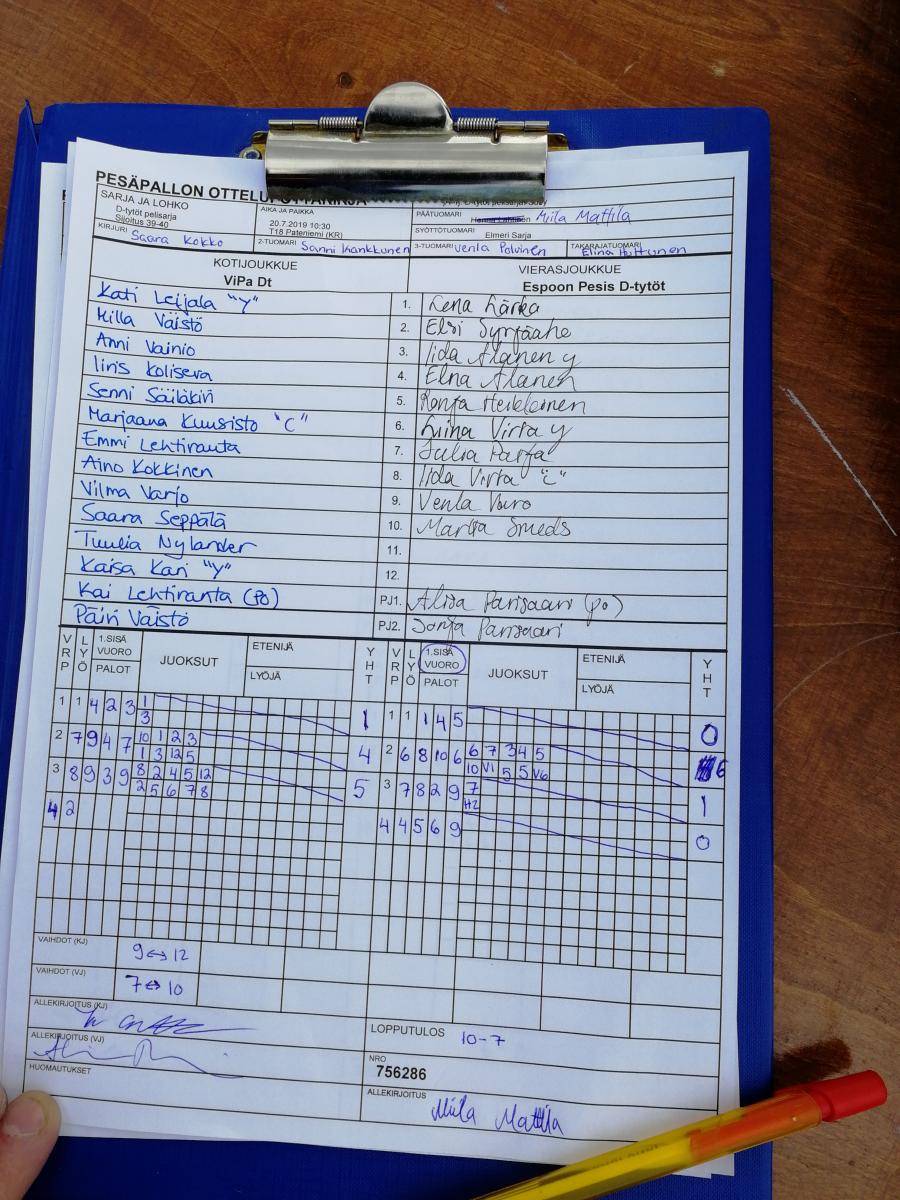 PESÄPALLON OTTELUPÖYTÄKIRJA
SARJA JA LOHKO
D-tytöt pelisarja
Sijoitus 39-40
AIKA JA PAIKKA
20.7.2019 10:30
T18 Pateniemi (KR)
PÄÄTUOMARI Miila Mattila
SYÖTTÖTUOMARI Elmeri Sarja
KIRJURI Saara Kokko
2-TUOMARI Sanni Kankkunen
3-TUOMARI Venla Polvinen
TAKARAJATUOMARI Elina Huttunen
KOTIJOUKKUE
ViPa Dt
VIERASJOUKKUE
Espoon Pesis D-tytöt
Kati Leijala "y" 1. Lena Lärka
Milla Väistö 2. Elsi Syrjäaho
Anni Vainio 3. Iida Alanen y
Iiris Koliseva 4. Elna Alanen
Senni Säiläkivi 5. Ronja Heikkinen
Marjaana Kuusisto "C" 6. Liina Virta y
Emmi Lehtiranta 7. Julia Parja
Aino Kokkinen 8. Iida Virta "c"
Vilma Varjo 9. Venla Vuro
Saara Seppälä 10. Martta Smeds
Tuulia Nylander 11.
Kaisa Kari "y" 12.
Kai Lehtiranta (po) PJ1. Alisa Parisaari (po)
Päivi Väistö PJ2. Sonja Parisaari
VRP LYÖ 1.SISÄ VUORO PALOT JUOKSUT ETENIJÄ LYÖJÄ YHT VRP LYÖ 1.SISÄ VUORO PALOT JUOKSUT ETENIJÄ LYÖJÄ YHT
1 1 4 2 3 1 1 1 1 1 4 5 0
3
2 7 9 4 7 10 1 2 3 4 2 6 8 10 6 6 7 3 4 5 6
1 3 12 5 10 V1 5 5 V6
3 8 9 3 9 8 2 4 5 12 5 3 7 8 2 9 7 1
2 5 6 7 8 H2
4 2 4 4 5 6 9 0
VAIHDOT (KJ) 9↔12
VAIHDOT (VJ) 7↔10
ALLEKIRJOITUS (KJ)
LOPPUTULOS 10-7
ALLEKIRJOITUS (VJ)
NRO
756286
HUOMAUTUKSET
ALLEKIRJOITUS
Miila Mattila